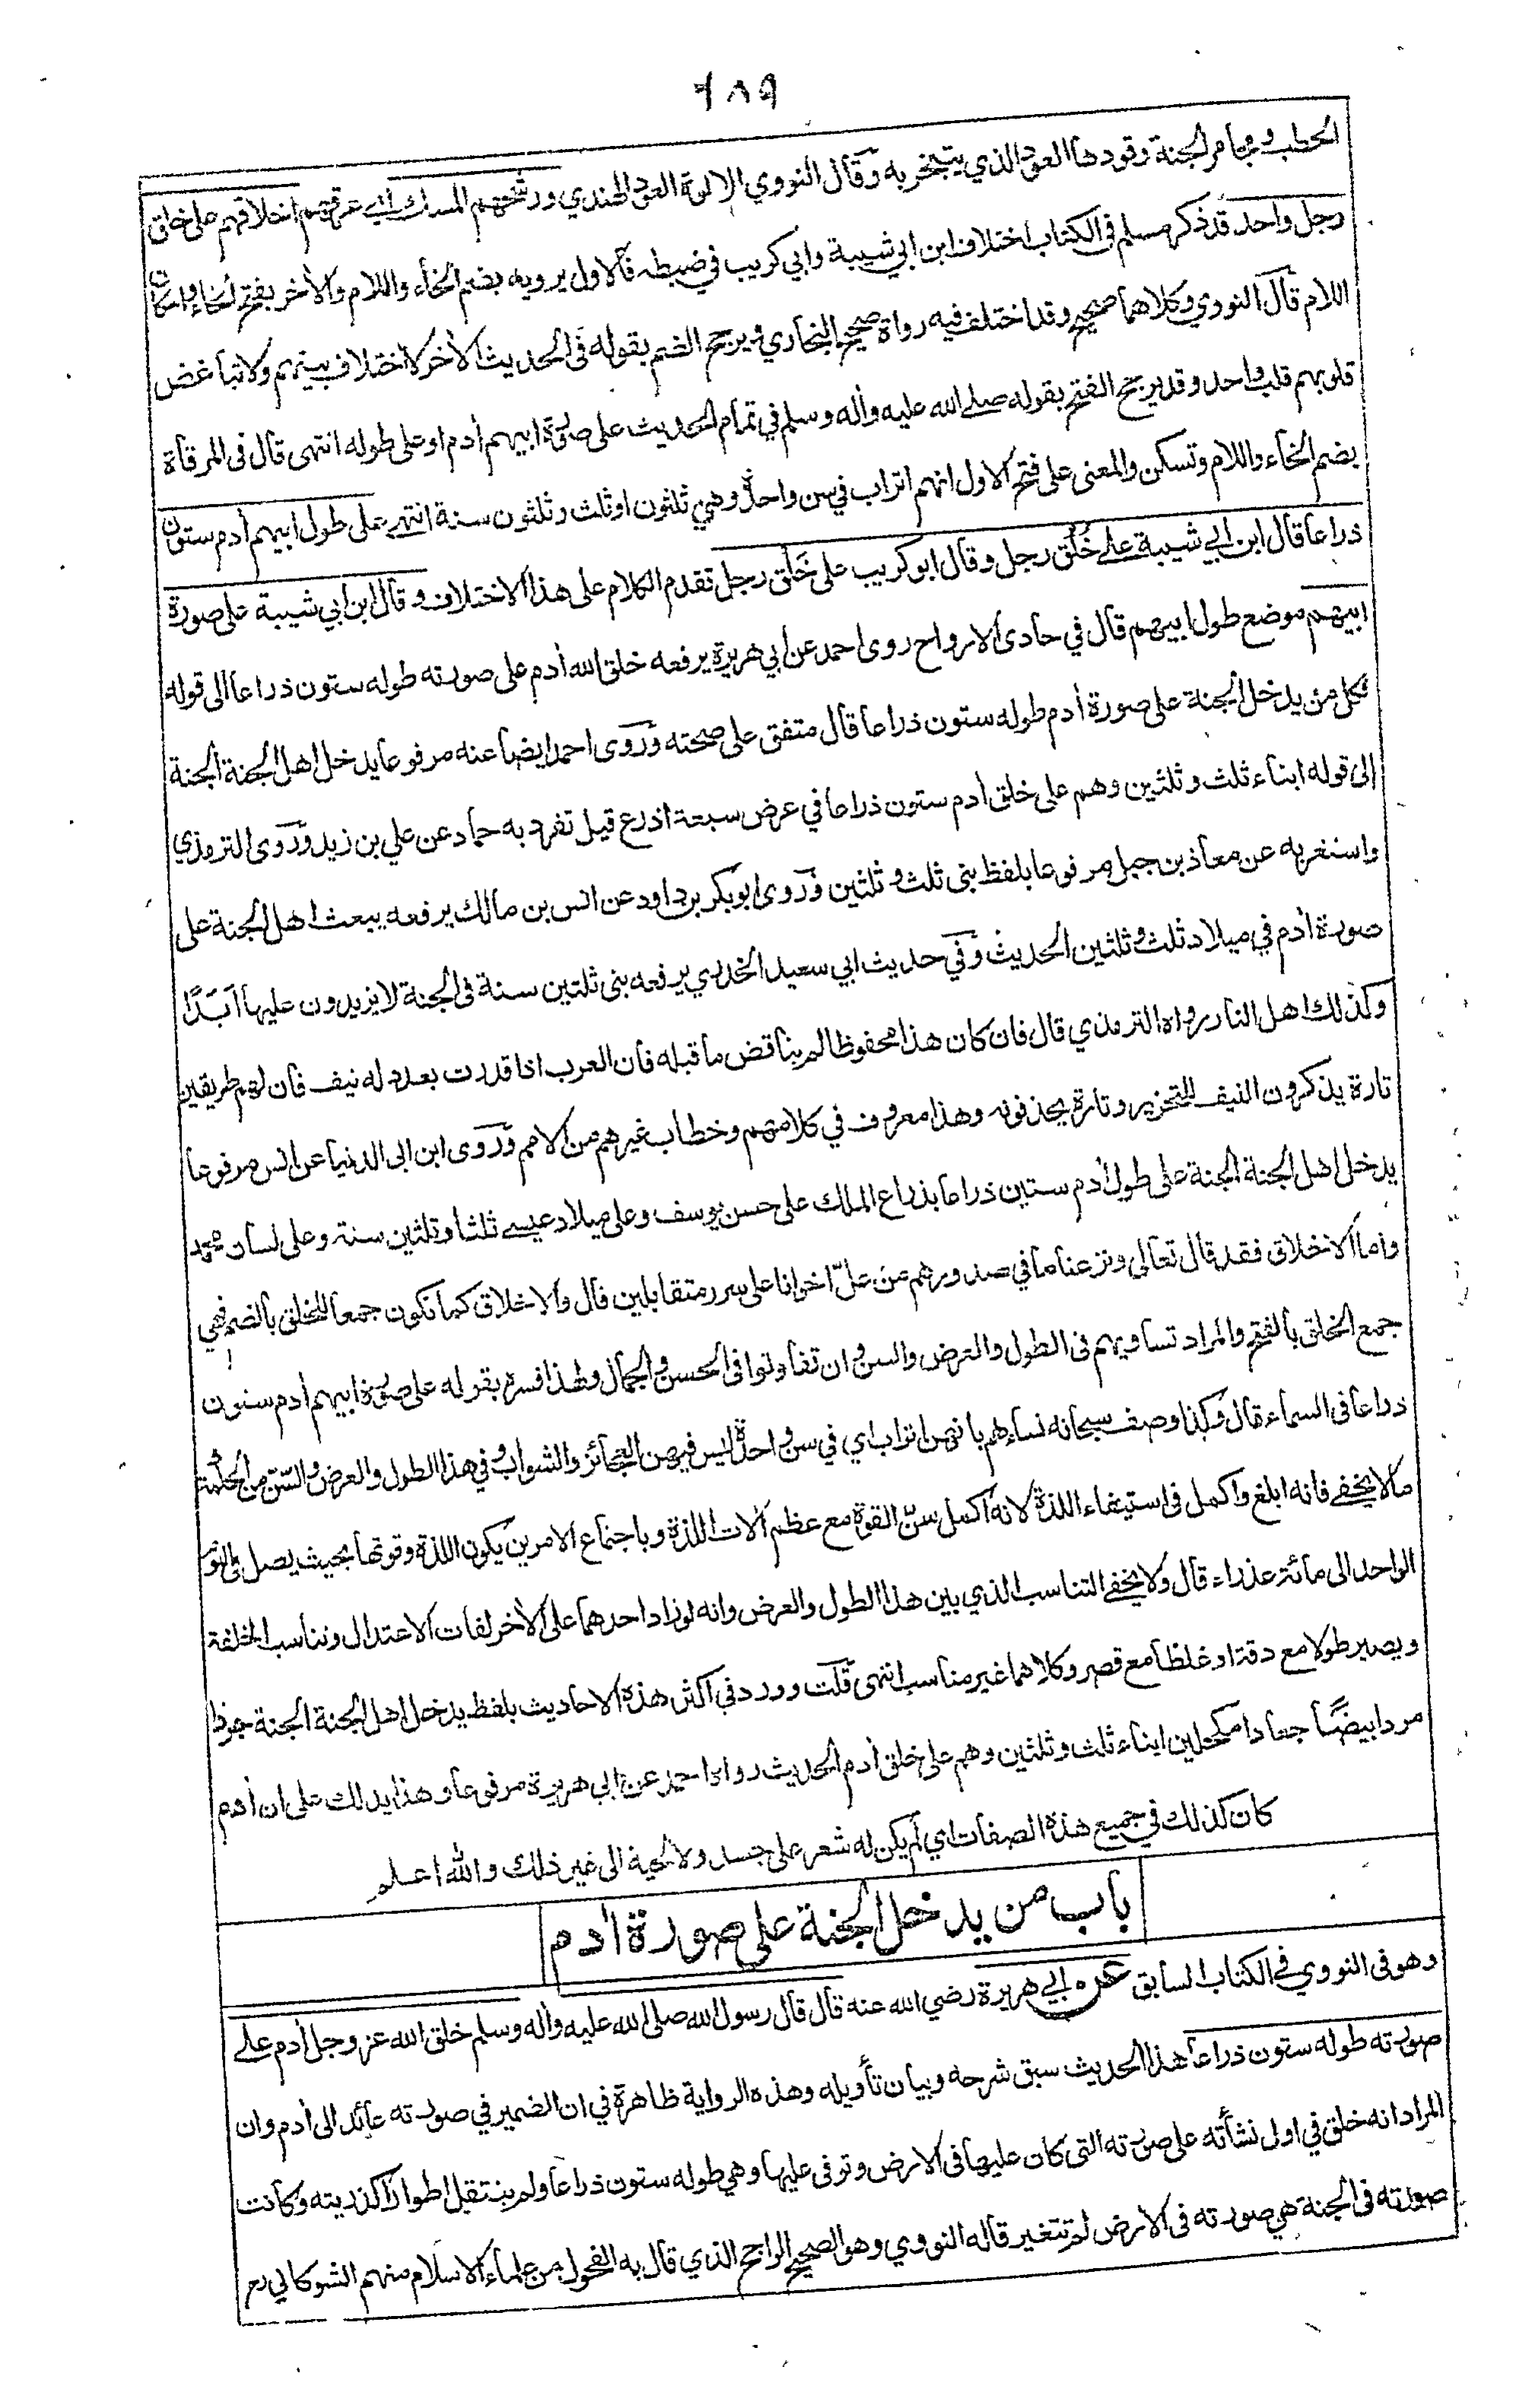 ٦٨٩
الحطب ومجامر الجنة وقودها العود الذي يتبخر به وقال النووي الالوة العود الهندي ورشحهم المسك اي عرقهم اخلاقهم على خلق
رجل واحد قد ذكر مسلم في الكتاب اختلاف ابن ابي شيبة وابي كريب في ضبطه فالاول يرويه بضم الخاء واللام والأخر بفتح الخاء واسكان
اللام قال النووي وكلاهما صحيح وقد اختلف فيه رواة صحيح البخاري ويرجح الضم بقوله في الحديث الأخر لا اختلاف بينهم ولا تباغض
قلوبهم قلب واحد وقد يرجح الفتح بقوله صلى الله عليه وأله وسلم في تمام الحديث على صورة ابيهم أدم او على طوله انتهى قال في المرقاة
بضم الخاء واللام وتسكن والمعنى على فتح الاول انهم اتراب في سن واحدة وهي ثلثون او ثلث وثلثون سنة انتهى على طول ابيهم أدم ستون
ذراعا قال ابن ابي شيبة على خُلُق رجل وقال ابو كريب على خَلْق رجل تقدم الكلام على هذا الاختلاف وقال ابن ابي شيبة على صورة
ابيهم موضع طول ابيهم قال في حادى الارواح روى احمد عن ابي هريرة يرفعه خلق الله أدم على صورته طوله ستون ذراعا الى قوله
فكل من يدخل الجنة على صورة أدم طوله ستون ذراعا قال متفق على صحته وروى احمد ايضا عنه مرفوعا يدخل اهل الجنة الجنة
الى قوله ابناء ثلث وثلثين وهم على خلق أدم ستون ذراعا في عرض سبعة اذرع قيل تفرد به حماد عن علي بن زيد وروى الترمذي
واستغربه عن معاذ بن جبل مرفوعا بلفظ بنى ثلث وثلثين وروى ابو بكر بن داود عن انس بن مالك يرفعه يبعث اهل الجنة على
صورة أدم في ميلاد ثلث وثلثين الحديث وفي حديث ابي سعيد الخدري يرفعه بنى ثلثين سنة في الجنة لا يزيدون عليها أبَدًا
وكذلك اهل النار رواه الترمذي قال فان كان هذا محفوظا لم يناقض ما قبله فان العرب اذا قدرت بعدد له نيف فان لهم طريقين
تارة يذكرون النيف للتحرير وتارة يحذفونه وهذا معروف في كلامهم وخطاب غيرهم من الامم وروى ابن ابى الدنيا عن انس مرفوعا
يدخل اهل الجنة الجنة على طول أدم ستين ذراعا بذراع الملك على حسن يوسف وعلى ميلاد عيسى ثلثا وثلثين سنة وعلى لسان محمد
واما الاخلاق فقد قال تعالى ونزعنا ما في صدورهم من غلّ اخوانا على سرر متقابلين قال والاخلاق كما تكون جمعا للخلق بالضم فهي
جمع الخلق بالفتح والمراد تساويهم في الطول والعرض والسن وان تفاوتوا في الحسن والجمال ولهذا فسره بقوله على صورة ابيهم أدم ستون
ذراعا في السماء قال وكذا وصف سبحانه نساءهم بانهن اتراب اي في سن واحدة ليس فيهن العجائز والشواب وفي هذا الطول والعرض والسّن من الحكمة
ما لا يخفى فانه ابلغ واكمل في استيفاء اللذة لانه اكمل سنّ القوة مع عظم ألات اللذة وباجتماع الامرين يكون اللذة وقوتها بحيث يصل في اليوم
الواحد الى مائة عذراء قال ولا يخفى التناسب الذي بين هذا الطول والعرض وانه لو زاد احدهما على الأخر لفات الاعتدال وتناسب الخلقة
ويصير طولا مع دقة او غلظا مع قصر وكلاهما غير مناسب انتهى قلت وورد في اكثر هذه الاحاديث بلفظ يدخل اهل الجنة الجنة جردا
مردا بيضًا جعادا مكحلين ابناء ثلث وثلثين وهم على خلق أدم الحديث رواه احمد عن ابى هريرة مرفوعا وهذا يدلك على ان أدم
كان كذلك في جميع هذه الصفات اي لم يكن له شعر على جسد ولا لحية الى غير ذلك والله اعلم
باب من يدخل الجنة على صورة أدم
وهو في النووي في الكتاب السابق عن ابي هريرة رضي الله عنه قال قال رسول الله صلى الله عليه وأله وسلم خلق الله عز وجل أدم على
صورته طوله ستون ذراعا هذا الحديث سبق شرحه وبيان تأويله وهذه الرواية ظاهرة في ان الضمير في صورته عائد الى أدم وان
المراد انه خلق في اول نشأته على صورته التي كان عليها في الارض وتوفى عليها وهي طوله ستون ذراعا ولم ينتقل اطوارًا كذريته وكانت
صورته في الجنة هي صورته في الارض لم تتغير قاله النووي وهو الصحيح الراجح الذي قال به الفحول من علماء الاسلام منهم الشوكاني رح